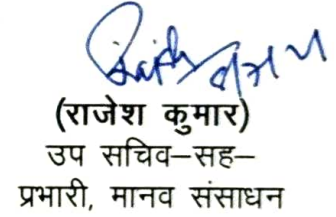 (राजेश कुमार)
उप सचिव–सह–
प्रभारी, मानव संसाधन